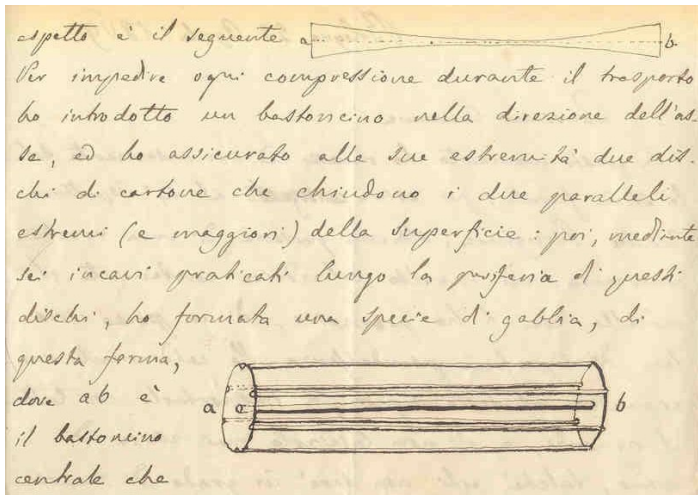 aspetto è il seguente a b
Per impedire ogni compressione durante il trasporto
ho introdotto un bastoncino nella direzione dell'as-
se, ed ho assicurato alle sue estremità due dis-
chi di cartone che chiudono i due paralleli
estremi (e maggiori) della superficie: poi, mediante
sei incavi praticati lungo la periferia di questi
dischi, ho formata una specie di gabbia, di
questa forma,
dove ab è a a b
il bastoncino
centrale che